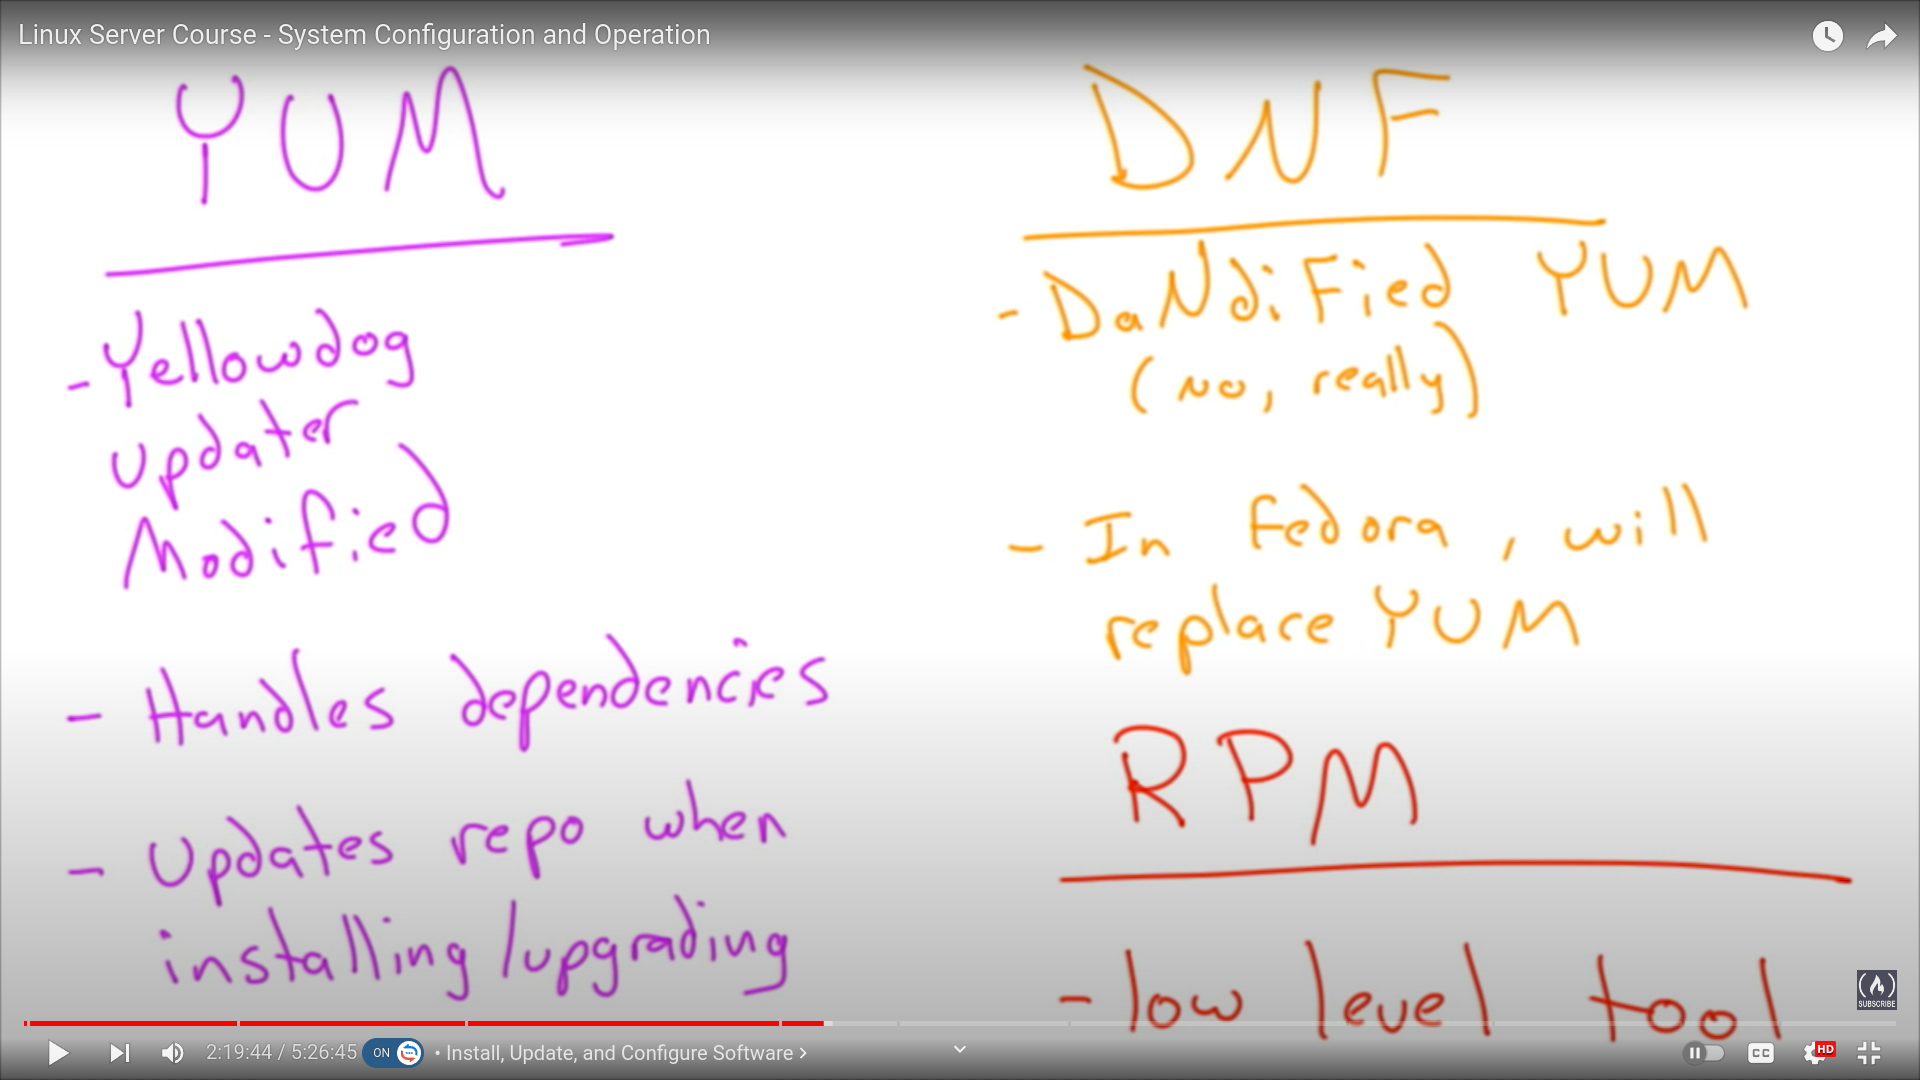 Linux Server Course - System Configuration and Operation
YUM
- Yellowdog
Updater
Modified
- Handles dependencies
- Updates repo when
installing/upgrading
DNF
- DaNdiFied YUM
(No, really)
- In Fedora, will
replace YUM
RPM
- low level tool
SUBSCRIBE
2:19:44 / 5:26:45 ON • Install, Update, and Configure Software
CC HD